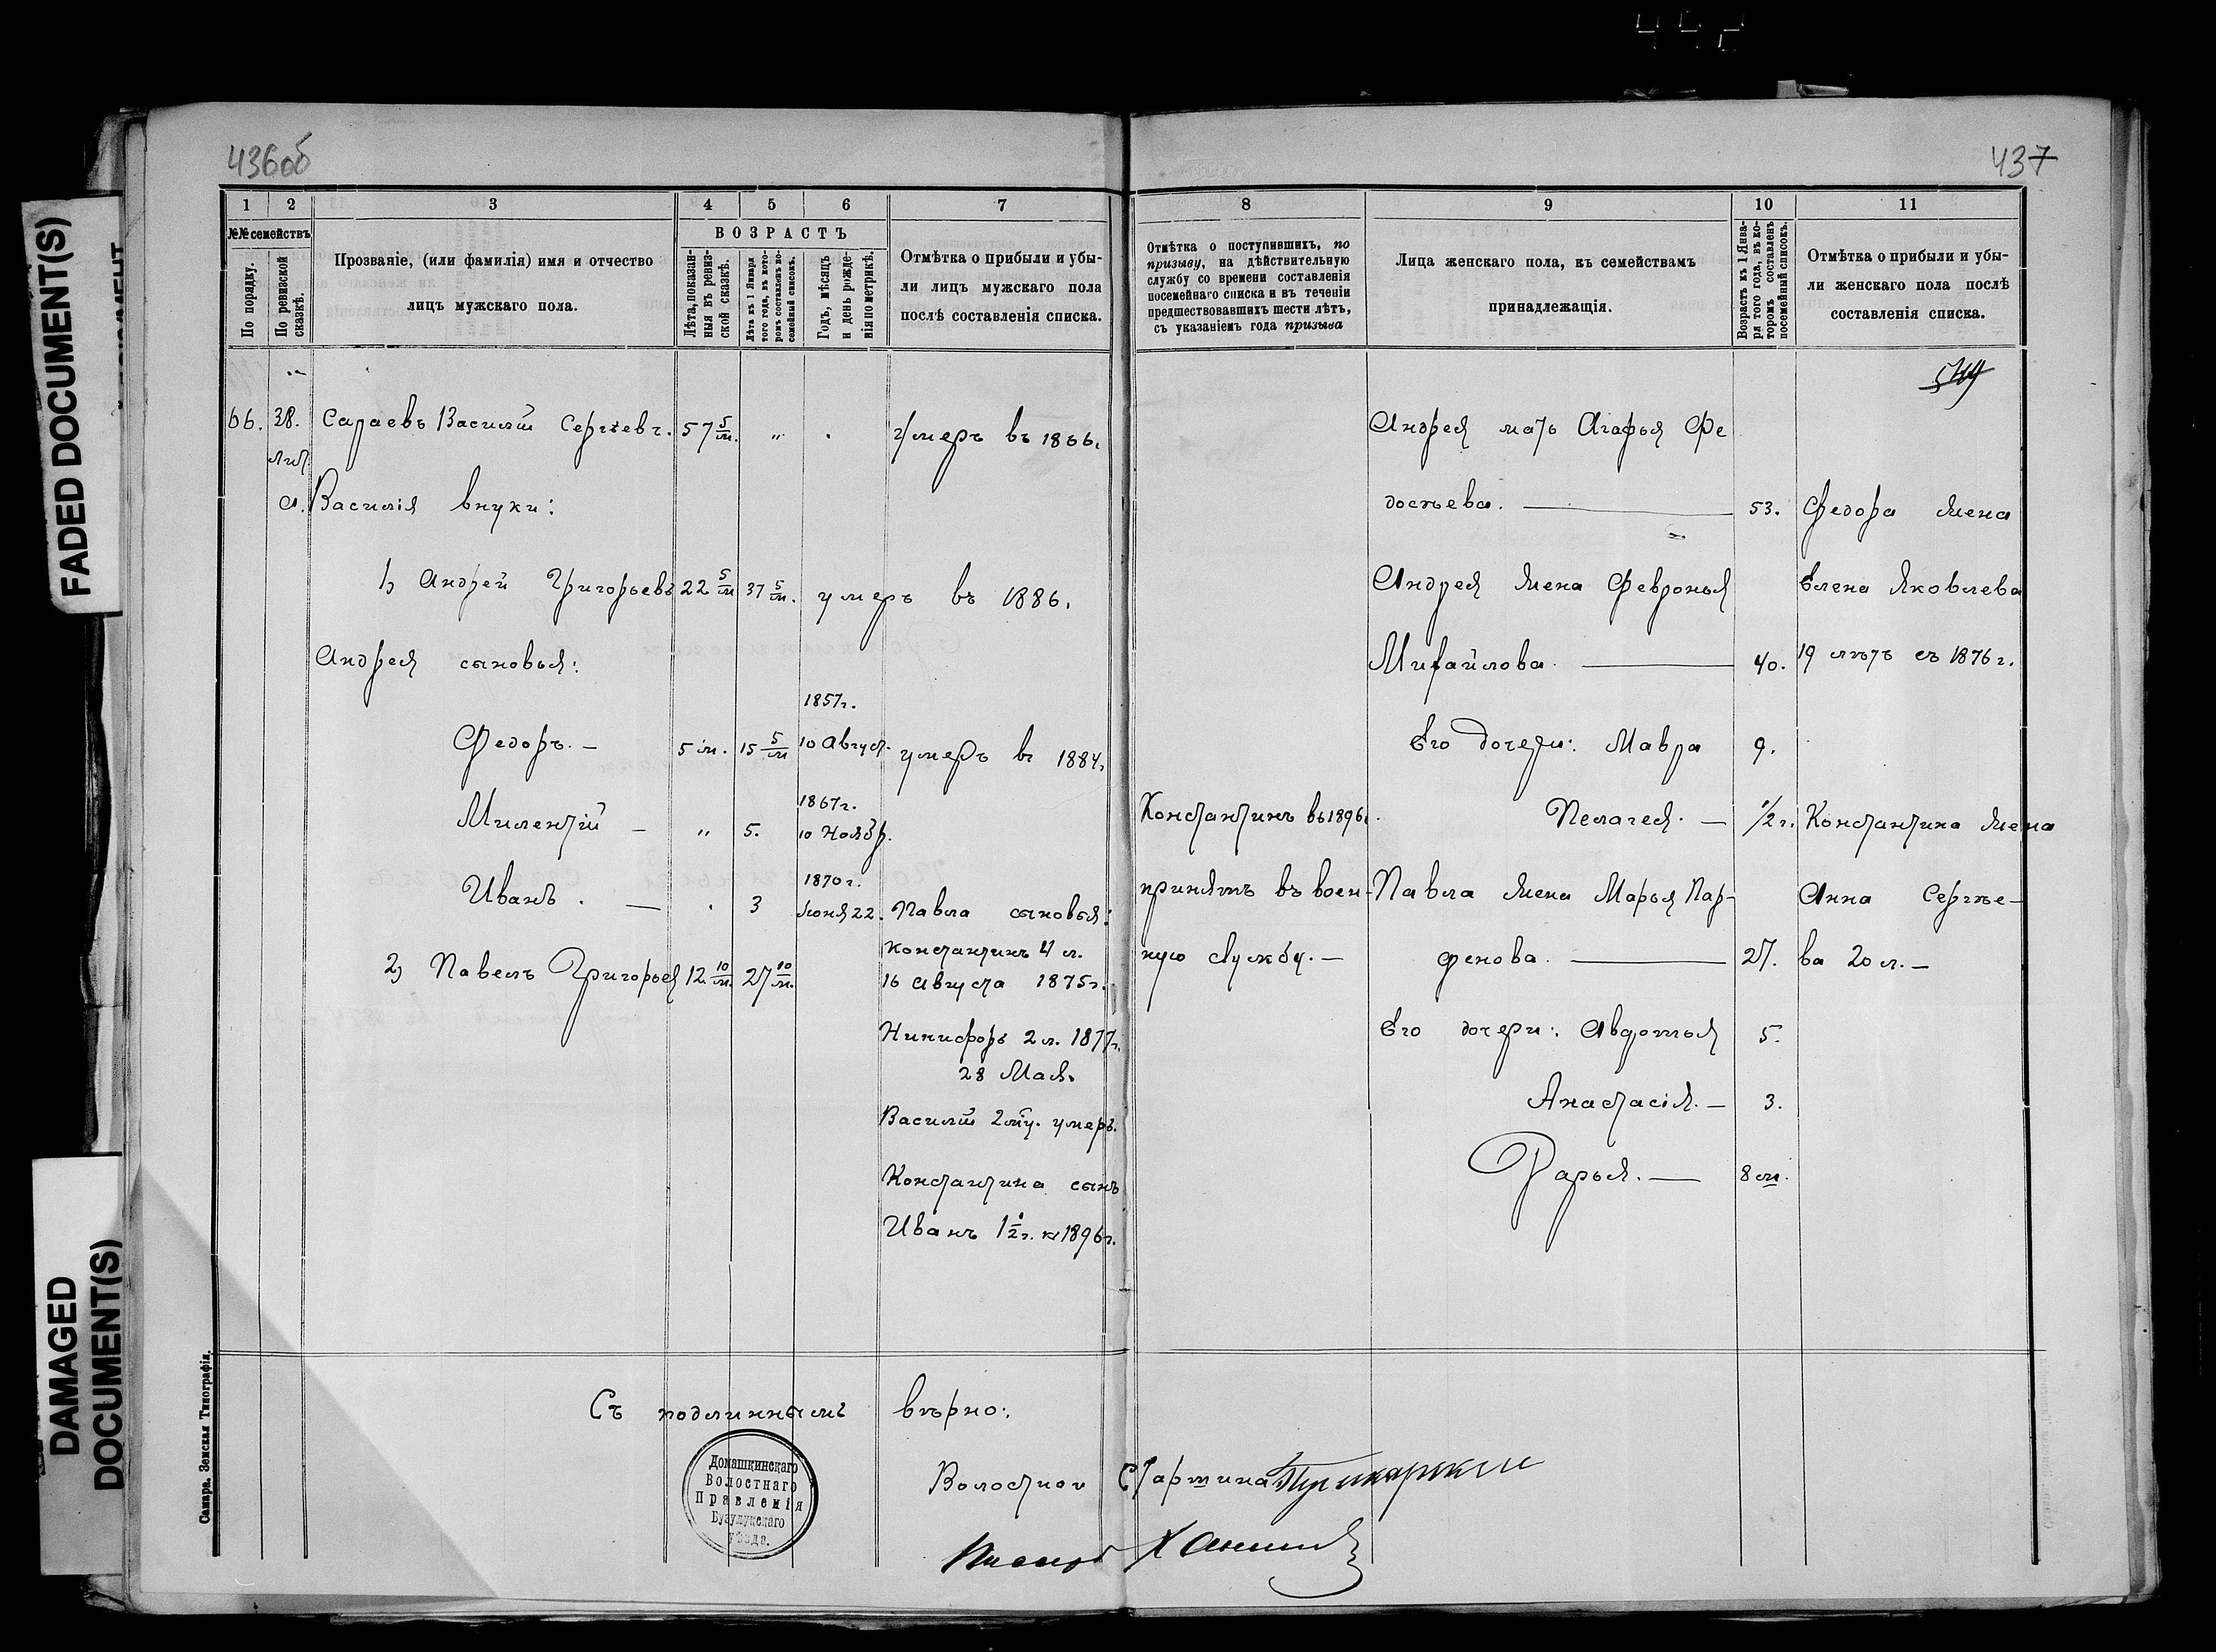 436об
437
FADED DOCUMENT(S)
DAMAGED
DOCUMENT(S)
1
2
3
4
5
6
7
№№ семействъ
По порядку.
По ревизской сказкѣ.
Прозваніе, (или фамилія) имя и отчество
лицъ мужскаго пола.
ВОЗРАСТЪ
Лѣта, показан-
ныя въ ревиз-
ской сказкѣ.
Лѣта къ 1 Января
того года, въ кото-
ромъ составленъ по-
семейный списокъ.
Годъ, мѣсяцъ
и день рожде-
нія по метрикѣ.
Отмѣтка о прибыли и убы-
ли лицъ мужскаго пола
послѣ составленія списка.
66.
38.
Сараевъ Василій Сергѣевъ.
57 5/м.
„
умеръ въ 1866.
Василія внуки:
1, Андрей Григорьевъ
22 5/м
37 5/м.
умеръ въ 1886.
Андрея сыновья:
Федоръ. —
5 м.
15 5/м
1857г.
10 Август.
умеръ въ 1884.
Милентій —
„
5.
1867г.
10 Ноябр.
Иванъ. —
3
1870г.
Іюня 22.
Павла сыновья:
Константинъ 4 л.
2, Павелъ Григорьев
12 10/м.
27 10/м.
16 августа 1875г.
Никифоръ 2 л. 1877г.
28 Мая.
Василій 2 му. умеръ.
Константина сынъ
Иванъ 1 1/2 г. къ 1896г.
8
9
10
11
Отмѣтка о поступившихъ, по
призыву, на дѣйствительную
службу со времени составленія
посемейнаго списка и въ теченіи
предшествовавшихъ шести лѣтъ,
съ указаніемъ года призыва
Лица женскаго пола, къ семействамъ
принадлежащія.
Возрастъ къ 1 Янва-
ря того года, въ ко-
торомъ составленъ
посемейный списокъ.
Отмѣтка о прибыли и убы-
ли женскаго пола послѣ
составленія списка.
Андрея мать Агафья Фе
досѣева. —
53.
Федора жена
Андрея жена Февронья
Елена Яковлева
Михайлова. —
40.
19 лѣтъ съ 1876г.
Его дочери: Мавра
9.
Константинъ въ 1896г.
Пелагея. —
1/2 г.
Константина жена
принятъ въ воен-
Павла жена Марья Пар-
Анна Сергѣе-
ную службу. —
фенова. —
27.
ва 20 л. —
Его дочери: Авдотья
5.
Анастасія. —
3.
Дарья. —
8 м.
Съ подлиннымъ вѣрно:
Домашкинскаго
Волостнаго
Правленія
Бузулукскаго
уѣзда.
Волостной Старшина
Писарь
Самара. Земская Типографія.